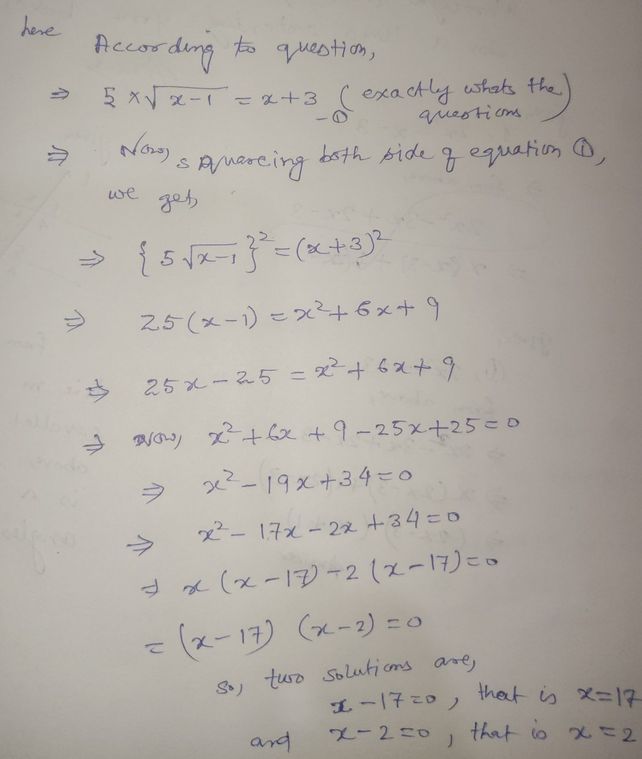 here According to question,
⇒ 5 × √x-1 = x+3 -① (exactly whats the questions)
⇒ Now, squareing both side of equation ①,
we get,
⇒ {5√x-1}² = (x+3)²
⇒ 25(x-1) = x²+6x+9
⇒ 25x-25 = x²+6x+9
⇒ now, x²+6x+9-25x+25=0
⇒ x²-19x+34=0
⇒ x²-17x-2x+34=0
⇒ x(x-17)-2(x-17)=0
= (x-17) (x-2)=0
so, two solutions are,
x-17=0, that is x=17
and x-2=0, that is x=2